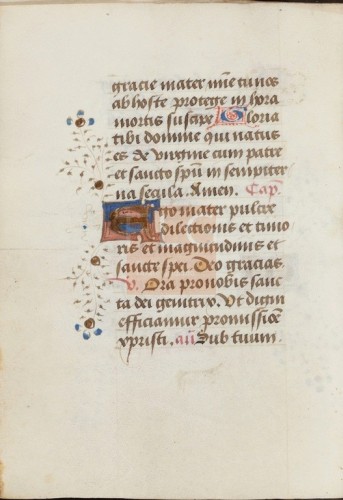 gracie mater mie tu nos
ab hoste protege in hora
mortis suscipe Gloria
tibi domine qui natus
es de virgine cum patre
et sancto spu in sempiter
na secula. Amen. Cap.
Ego mater pulcre
dilectionis et timo
ris et magnitudinis et
sancte spei. Deo gracias.
v. Ora pro nobis sanc
ta dei genitrix. Ut digni
efficiamur promissioe
xpristi. añ Sub tuum.